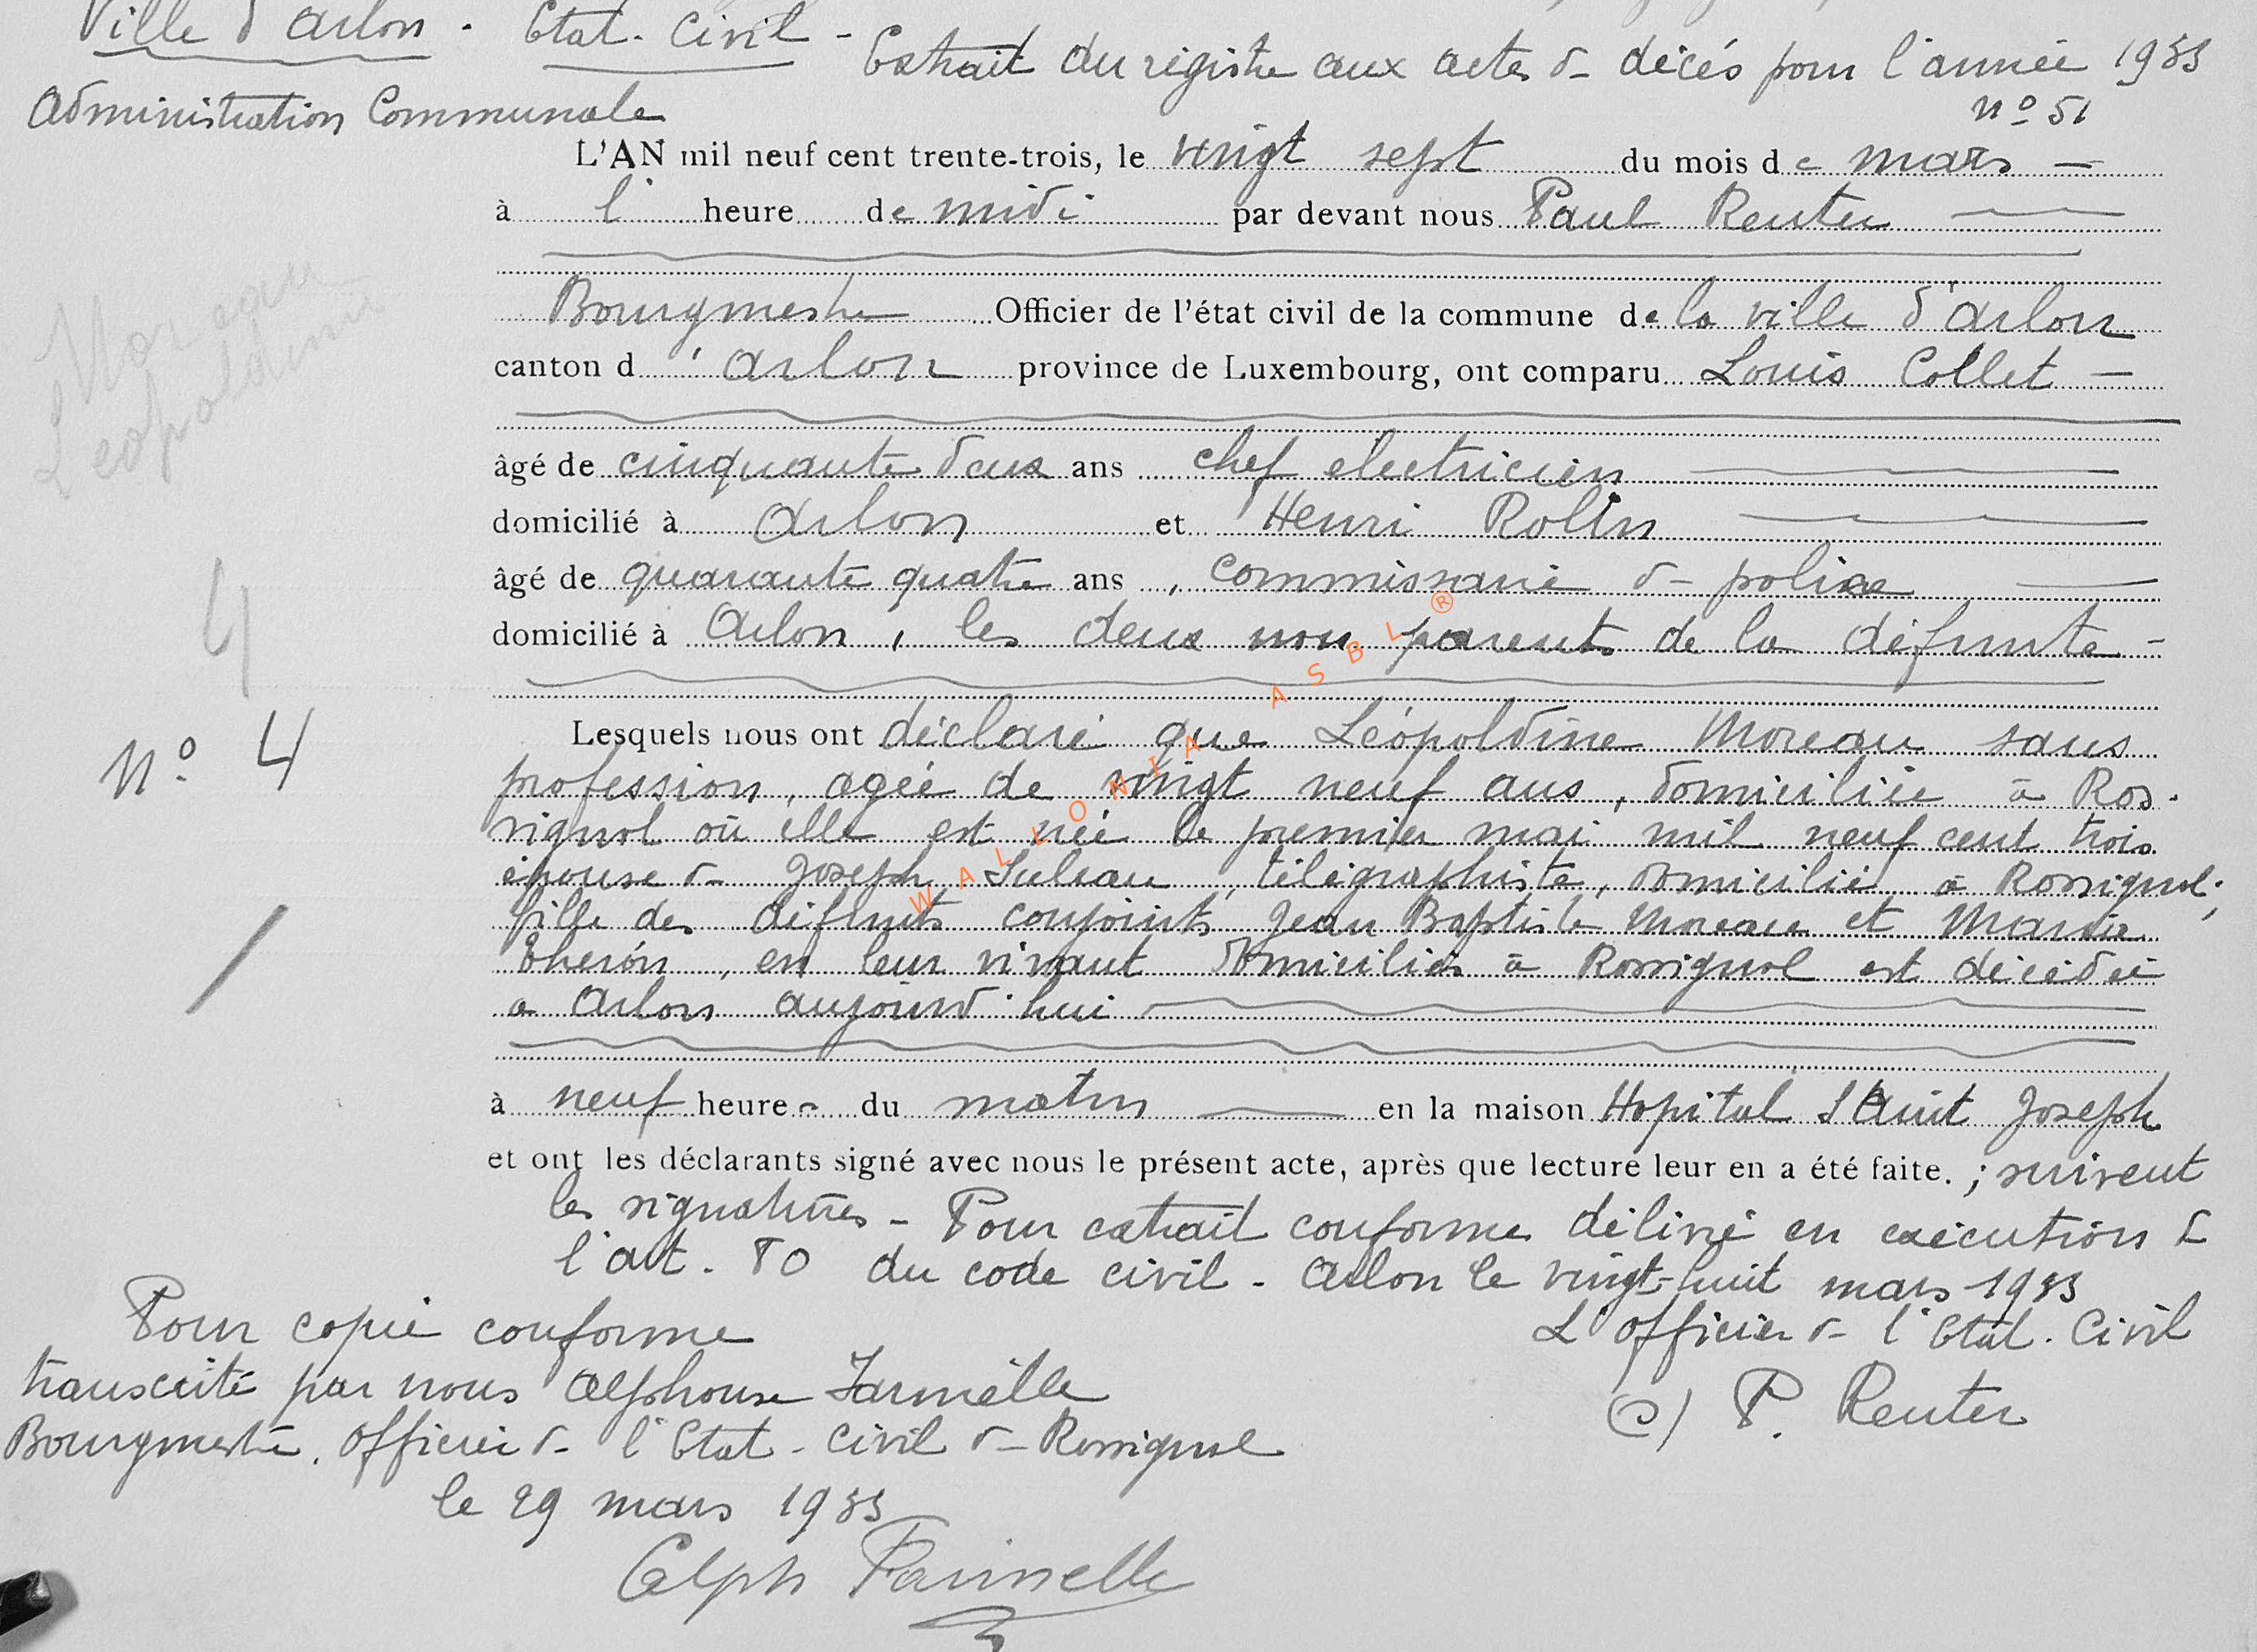 Ville d'Arlon. Etat-Civil - Extrait du registre aux actes de décés pour l'année 1933
Administration Communale
n° 51
L'AN mil neuf cent trente-trois, le vingt sept du mois de mars
à l' heure de midi par devant nous Paul Reuter
Bourgmestre Officier de l'état civil de la commune de la ville d'Arlon
canton d'Arlon province de Luxembourg, ont comparu Louis Collet
Moreau
Léopoldine
âgé de cinquante deux ans chef electricien
domicilié à Arlon et Henri Rolin
âgé de quarante quatre ans, commissaire de police
domicilié à Arlon, les deux non parents de la défunte
4
Lesquels nous ont déclaré que Léopoldine Moreau sans
n° 4
profession, agée de vingt neuf ans, domiciliée à Ros-
signol où elle est née le premier mai mil neuf cent trois
épouse de Joseph, télégraphiste, domicilié à Rossignol;
fille des défunts conjoints Jean Baptiste Moreau et Maria
en leur vivant domiciliés à Rossignol est décédée
a Arlon aujourd'hui
à neuf heures du matin en la maison Hopital Saint Joseph
et ont les déclarants signé avec nous le présent acte, après que lecture leur en a été faite. ; suivent
les signatures - Pour extrait conforme délivré en exécution de
l'art. 80 du code civil - Arlon le vingt-huit mars 1933
Pour copie conforme
L'officier de l'Etat-Civil
transcrite par nous Alphonse
(s) P. Reuter
Bourgmestre, officier de l'Etat-Civil de Rossignol
le 29 mars 1933
Alph
WALLONIA ASBL ®